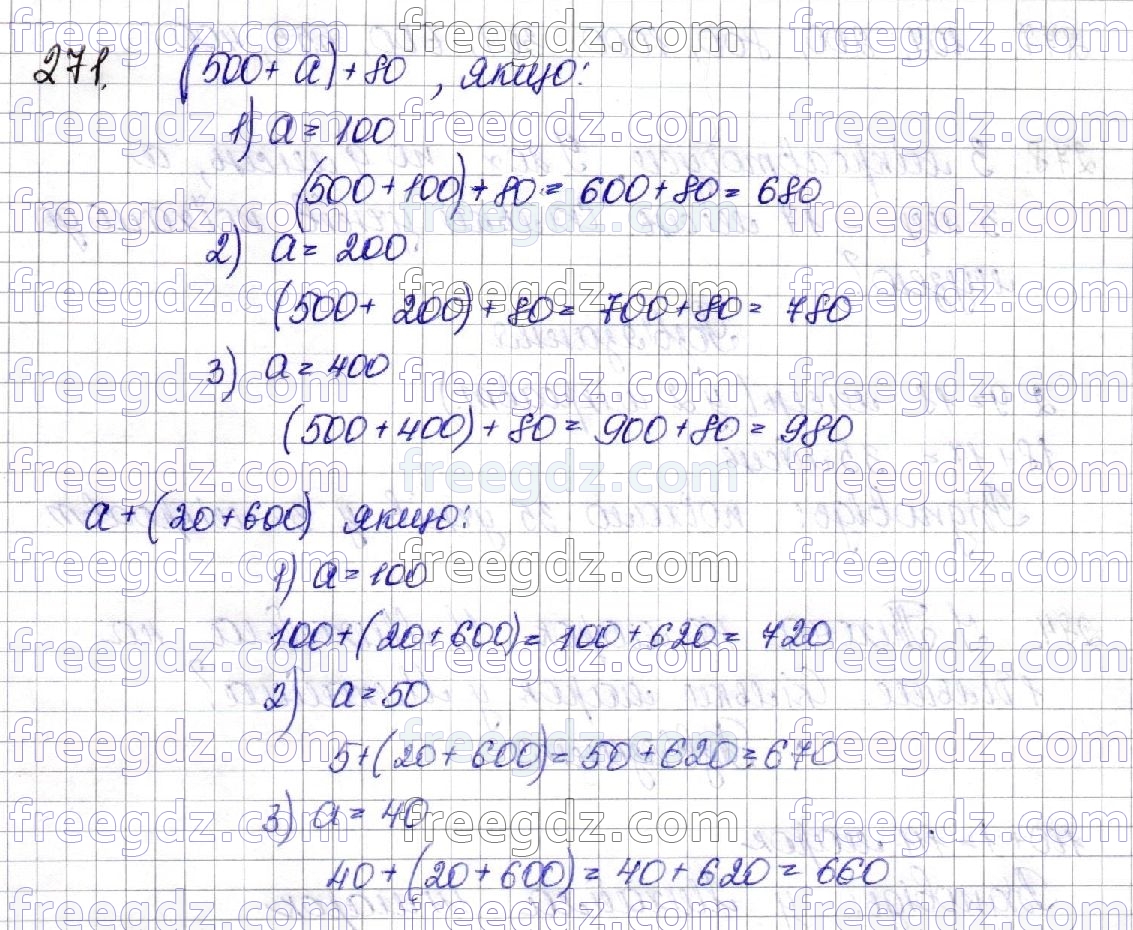 271. (500 + a) + 80, якщо:
1) a = 100
(500 + 100) + 80 = 600 + 80 = 680
2) a = 200
(500 + 200) + 80 = 700 + 80 = 780
3) a = 400
(500 + 400) + 80 = 900 + 80 = 980
a + (20 + 600) якщо:
1) a = 100
100 + (20 + 600) = 100 + 620 = 720
2) a = 50
5 + (20 + 600) = 50 + 620 = 670
3) a = 40
40 + (20 + 600) = 40 + 620 = 660
freegdz.com freegdz.com freegdz.com